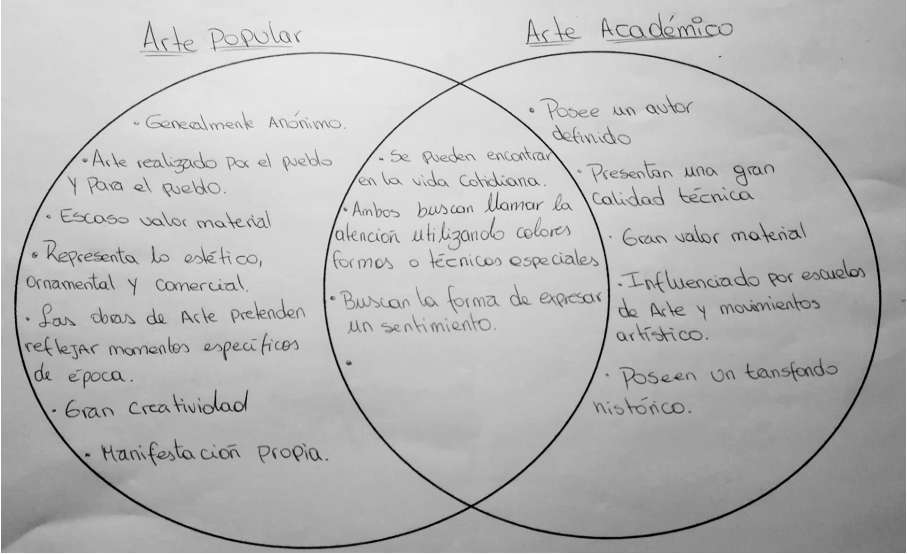 Arte Popular
Arte Académico
• Generalmente Anónimo.
• Arte realizado por el pueblo
y para el pueblo.
• Escaso valor material
• Representa lo estético,
ornamental y comercial.
• Las obras de Arte pretenden
reflejar momentos específicos
de época.
• Gran creatividad
• Manifestación propia.
• Se pueden encontrar
en la vida cotidiana.
• Ambos buscan llamar la
atención utilizando colores
formas o técnicas especiales
• Buscan la forma de expresar
un sentimiento.
•
• Posee un autor
definido
• Presentan una gran
calidad técnica
• Gran valor material
• Influenciado por escuelas
de Arte y movimientos
artístico.
• Poseen un tansfondo
histórico.